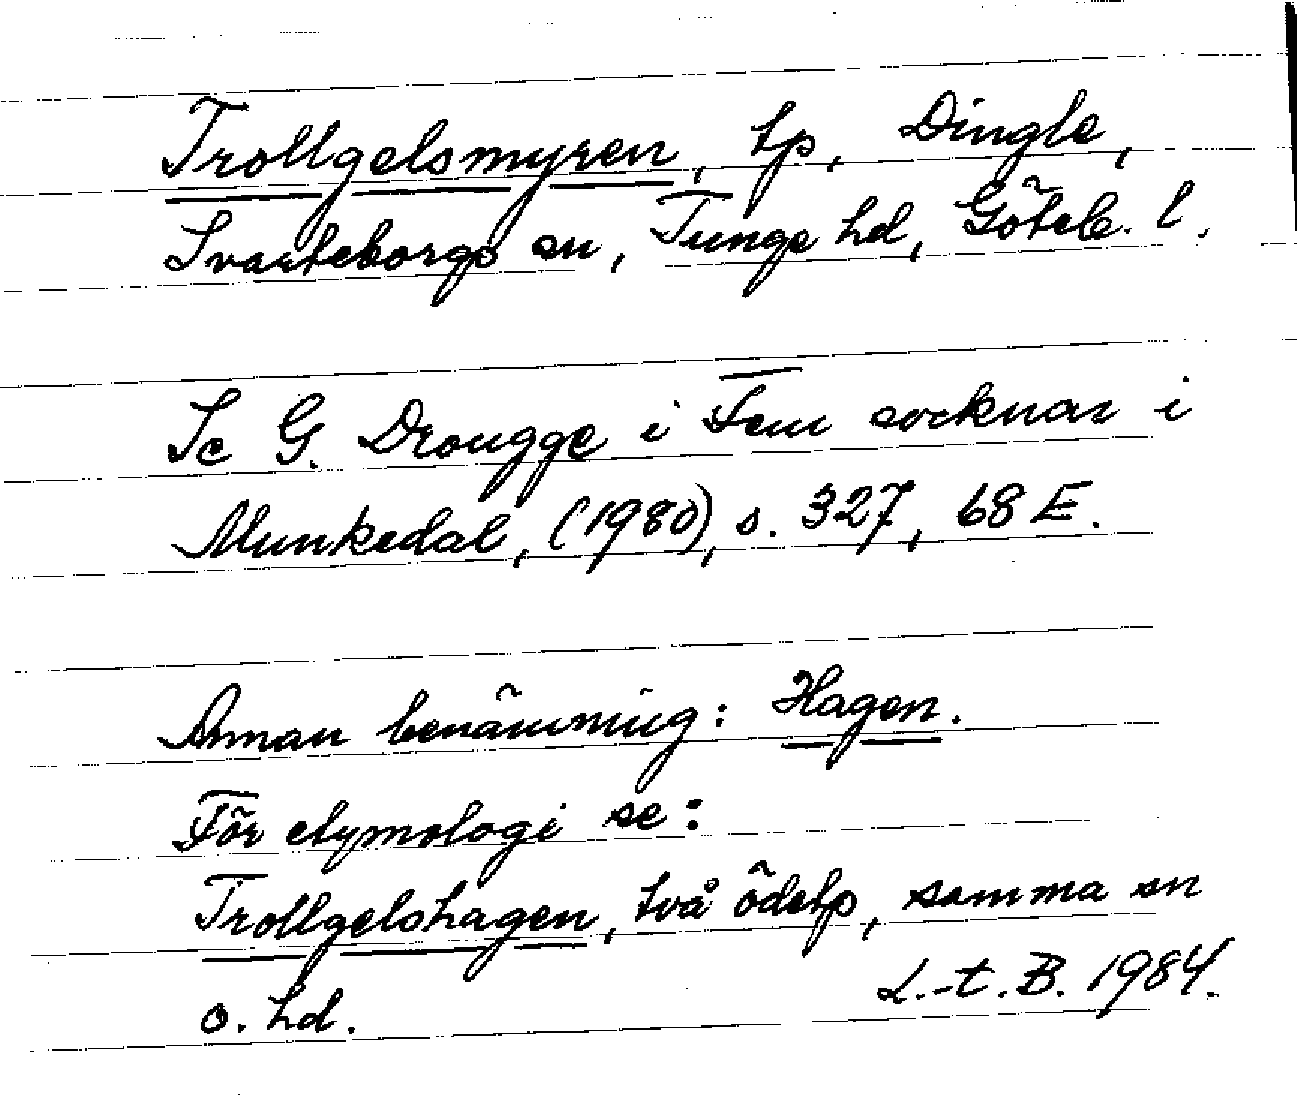 Trollgelsmyren, tp, Dingle,
Svarteborgs sn, Tunge hd, Göteb. l.
Se G. Drougge i Fem socknar i
Munkedal, (1980), s. 327, 68 E.
Annan benämning: Hagen.
För etymologi se:
Trollgelshagen, två ödetp, samma sn
o. hd.
L.-t. B. 1984.